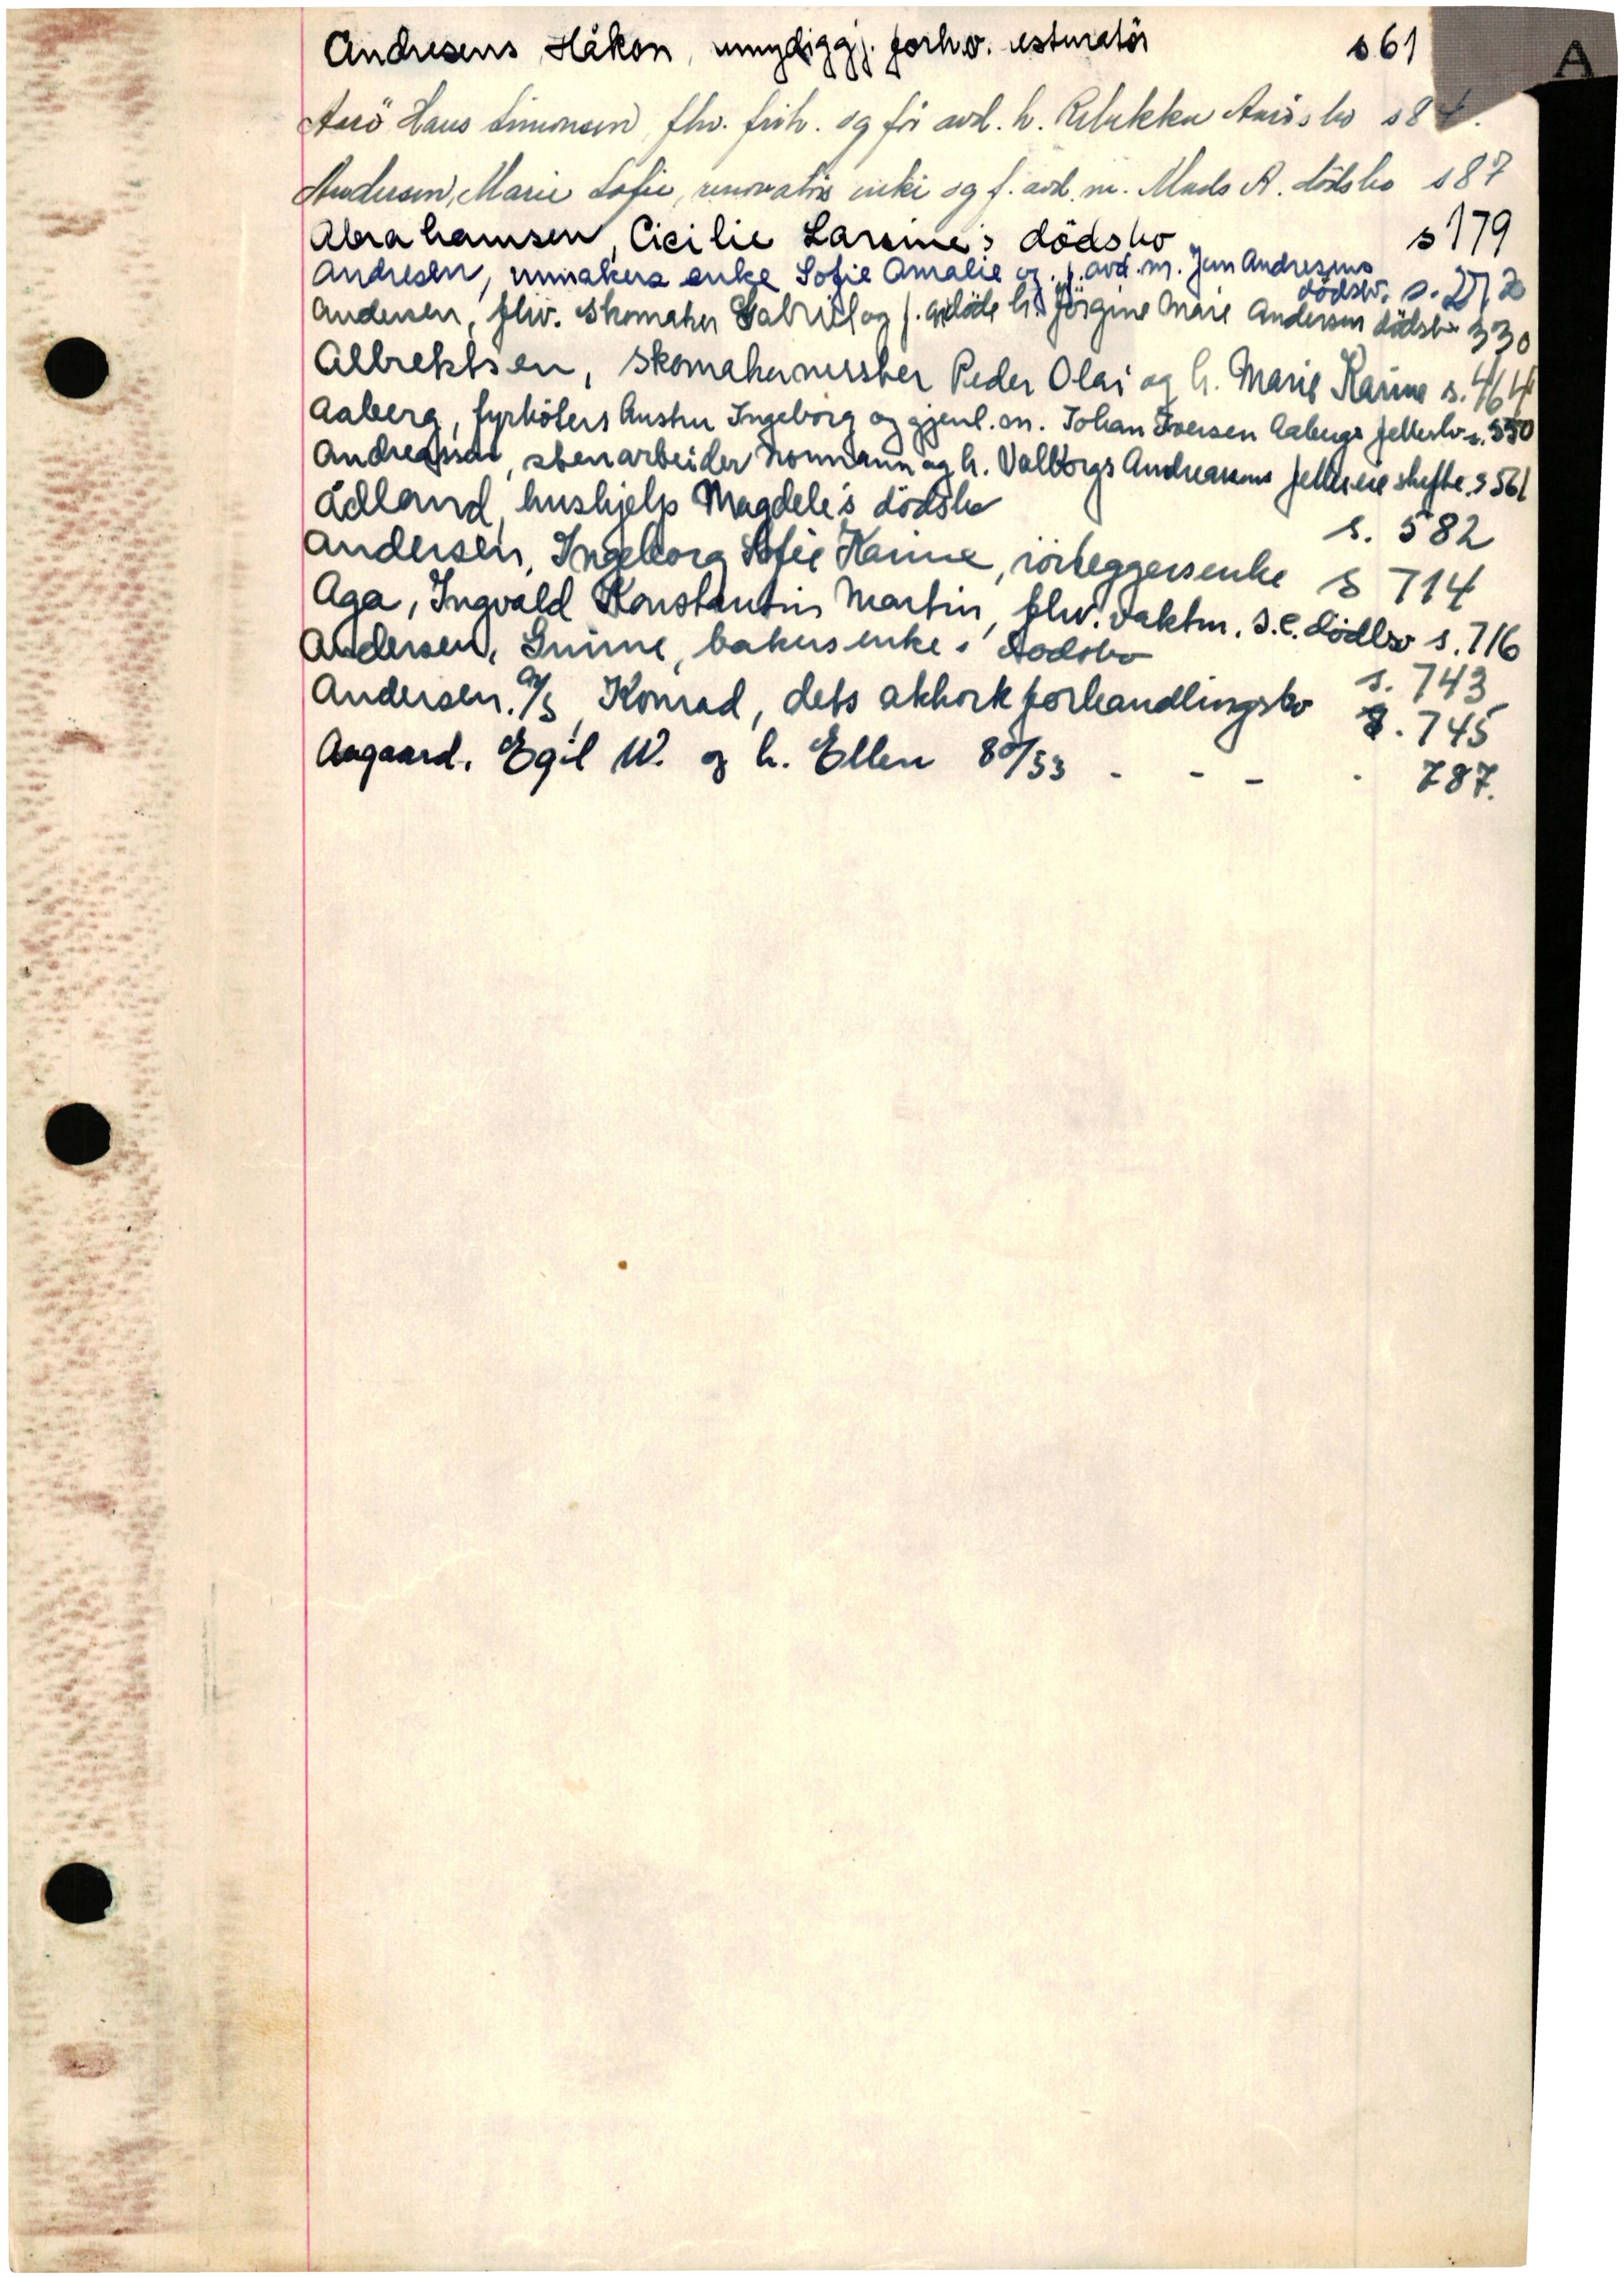 A
Andresens Håkon, umyndiggj. forhv. resturatör s 61
Aasö Hans Simonsen, fhv. fisk. og för avd. h. Rebekka Aasös bo s 84.
Andersen, Marie Sofie, renovatörs enke og f. avd. m. Mads A. dödsbo s 87
Abrahamsen, Cicilie Larsine's dödsbo s 179
Andresen, urmakers enke Sofie Amalie og f. avd. m. Jens Andresens
dödsbo. s. 272
Andersen, fhv. skomaker Gabriel og f. avdöde h. Jörgine Marie Andersens dödsbo 330
Albrektsen, skomakermester Peder Olai og h. Marie Karine s. 464
Aaberg, fyrböters hustru Ingeborg og gjenl. m. Johan Iversen Aabergs fellesbo s. 550
Andreassen, stenarbeider Normann og h. Valborgs Andreasens felleseieskifte s 561
Ådland, hushjelp Magdele's dödsbo s. 582
Andersen, Ingeborg Sofie Karine, rörleggersenke s 714
Aga, Ingvald Konstantin Martin, fhv. vaktm. s.e. dödsbo s. 716
Andersen, Gurine, bakers enke s dödsbo s. 743
Andersen. A/S, Konrad, dets akkordforhandlingsbo s. 745
Aagaard. Egil W. og h. Ellen 80/53 - - - - 787.